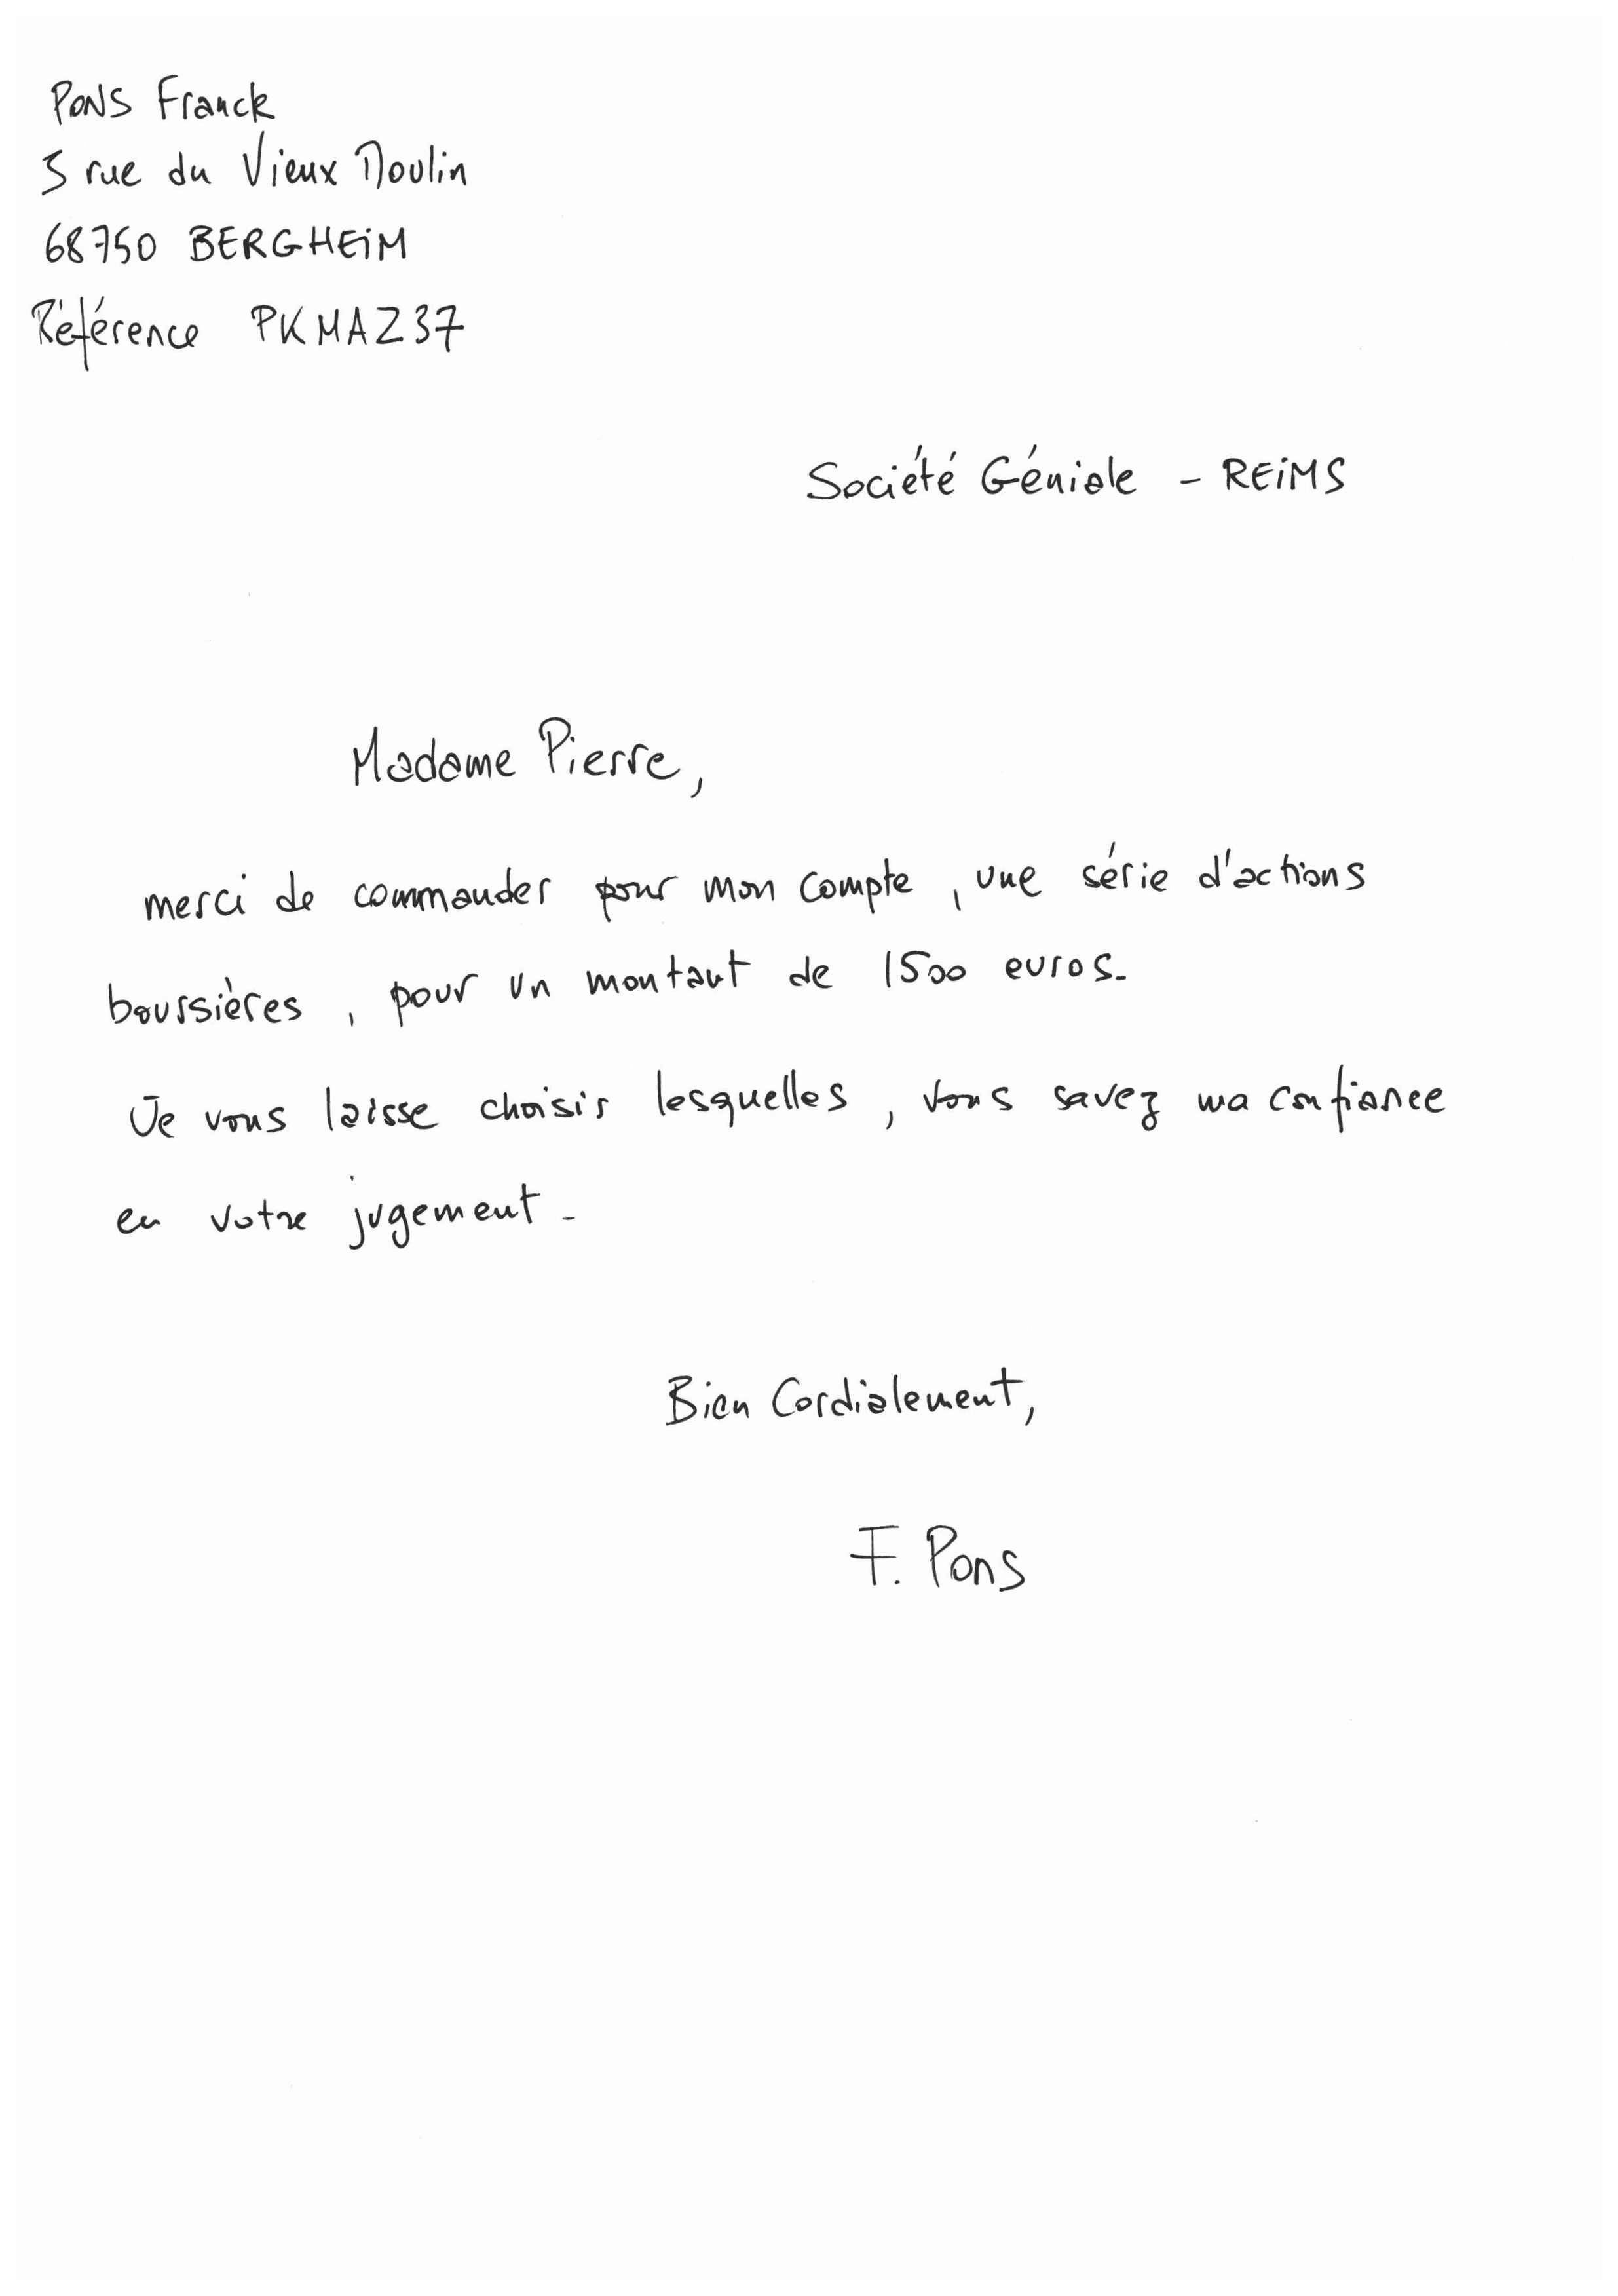 PONS Franck
5 rue du Vieux Moulin
68750 BERGHEiM
Référence PKMAZ37
Société Géniale - REiMS
Madame Pierre,
merci de commander pour mon compte, une série d'actions
boursières, pour un montant de 1500 euros.
Je vous laisse choisir lesquelles, vous savez ma confiance
en votre jugement.
Bien Cordialement,
F. Pons